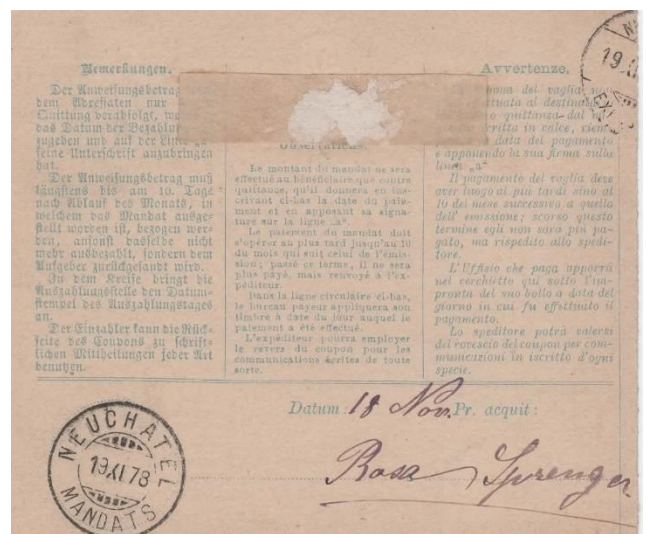 Bemerkungen.
Der Anweisungsbetrag
dem Adressaten nur
Quittung verabfolgt, wo
das Datum der Bezahlung
zugeben und auf der Linie
seine Unterschrift anzubringen
hat.
Der Anweisungsbetrag muß
längstens bis am 10. Tage
nach Ablauf des Monats, in
welchem das Mandat ausge-
stellt worden ist, bezogen wer-
den, ansonst dasselbe nicht
mehr ausbezahlt, sondern dem
Aufgeber zurückgesandt wird.
In dem Kreise bringt die
Auszahlungsstelle den Datum-
stempel des Auszahlungstages
an.
Der Einzahler kann die Rück-
seite des Coupons zu schrift-
lichen Mittheilungen jeder Art
benutzen.
Observations.
Le montant du mandat ne sera
effectué au bénéficiaire que contre
quittance, qu'il donnera en ins-
crivant ci-bas la date du paie-
ment et en apposant sa signa-
ture sur la ligne „a“.
Le paiement du mandat doit
s'opérer au plus tard jusqu'au 10
du mois qui suit celui de l'émis-
sion; passé ce terme, il ne sera
plus payé, mais renvoyé à l'ex-
péditeur.
Dans la ligne circulaire ci-bas,
le bureau payeur appliquera son
timbre à date du jour auquel le
paiement a été effectué.
L'expéditeur pourra employer
le revers du coupon pour les
communications écrites de toute
sorte.
Avvertenze.
del vaglia
destina
quittanza dal
scritta in calce,
data del pagamento
e apponendo la sua firma sulla
linea „a“
Il pagamento del vaglia deve
aver luogo al più tardi sino al
10 del mese successivo a quello
dell' emissione; scorso questo
termine egli non sarà più pa-
gato, ma rispedito allo spedi-
tore.
L'Uffizio che paga apporrà
nel cerchietto qui sotto l'im-
pronta del suo bollo a data del
giorno in cui fu effettuato il
pagamento.
Lo speditore potrà valersi
del rovescio del coupon per com-
municazioni in iscritto d'ogni
specie.
19.XI
Datum: 18 Nov. Pr. acquit:
NEUCHATEL
19.XI.78
MANDATS
Rosa Sprenger